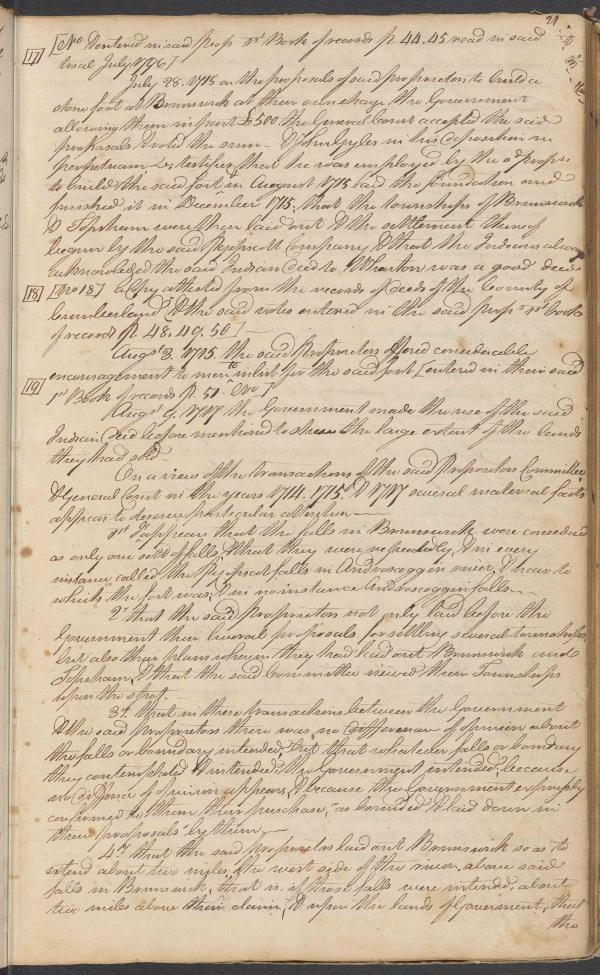 21
17 [No entered in said Prop. 1st Book of records p. 44.45 read in said
trial July 1796]
July 28. 1715 on the proposals of said proprietors to build a
stone fort at Brunswick at their own charge the Government
allowing them in part £500. the General Court accepted the said
proposals & voted the sum — & John Gyles in his deposition in
perpetuam &c testifies that he was employed by the sd propss
to build the said fort in August 1715. laid the foundation and
finished it in December 1715, that the townships of Brunswick
& Topsham were then laid out & the settlement thereof
began by the said Pejepscott Company, & that the Indians always
acknowledged the said Indian deed to Wharton was a good deed
18 [No 18] a copy attested from the records of deeds of the County of
Cumberland & the said votes entered in the said props 1st book
of records p. 48.49.50] —
Augst 3. 1715. the said Proprietors offered considerable
encouragement to men to inlist for the said fort [entered in their said
19 1st Book of records p. 51 No ]
Augst 9. 1717 the Government made the use of the said
Indian deed before mentioned to shew the large extent of the lands
they had sold
On a view of the transactions of the said Proprietors Committee
& General Court in the years 1714. 1715. & 1717 several material facts
appear to deserve particular attention —
1st It appears that the falls in Brunswick were considered
as only one sett of falls, & that they were repeatedly, & in every
instance called the Pejepscot falls in Androscoggin river, & near to
which the fort was, & in no instance Androscoggin falls —
2d that the said Proprietors not only laid before the
Government their several proposals for settling several townships,
but also their plans wherein they had laid out Brunswick and
Topsham, & that the said Committee viewed their Townships
upon the spot —
3d. that in these transactions between the Government
& the said proprietors there was no difference of opinion about
the falls or boundary intended, but that whatever falls or boundary
they contemplated & intended, the Government intended, because
no diffence of opinion appears, & because the Government expressly
confirmed to them their purchase, "as bounded & laid down in
their proposals" by them —
4th that the said proprietors laid out Brunswick so as to
extend about two miles, the west side of the river, above said
falls in Brunswick, that is, if those falls were intended, about
two miles above their claim, & upon the lands of Goverment, that
the